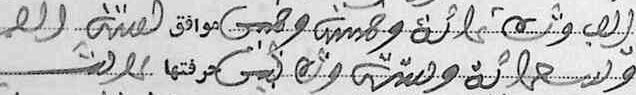 الف وثلاثمائة وخمسة وخمسين موافق لسنة الف
وتسعمائة وستة وثلاثين عرفتها